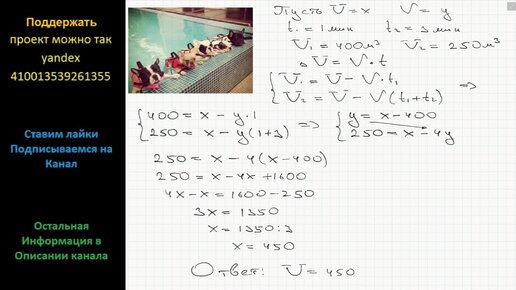 Поддержать
проект можно так
yandex
410013539261355
Ставим лайки
Подписываемся на
Канал
Остальная
Информация в
Описании канала
Пусть U = x V = y
t₁ = 1 мин t₂ = 3 мин
U₁ = 400 м³ U₂ = 250 м³
ΔU = V·t
{ U₁ = U − V·t₁
{ U₂ = U − V(t₁+t₂) =>
{ 400 = x − y·1
{ 250 = x − y(1+3) =>
{ y = x − 400
{ 250 = x − 4y
250 = x − 4(x − 400)
250 = x − 4x + 1600
4x − x = 1600 − 250
3x = 1350
x = 1350 : 3
x = 450
Ответ: U = 450